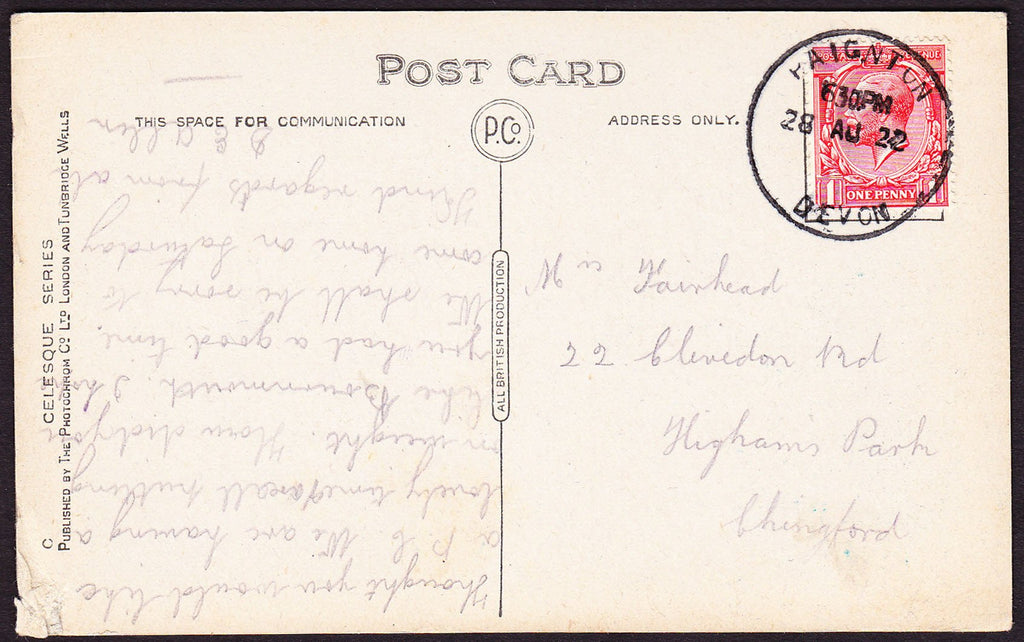 POST CARD
THIS SPACE FOR COMMUNICATION
P.Co.
ADDRESS ONLY.
PAIGNTON
6 30PM
28 AU 22
DEVON
ONE PENNY
C CELESQUE SERIES
PUBLISHED BY THE PHOTOCHROM CO LTD LONDON AND TUNBRIDGE WELLS
ALL BRITISH PRODUCTION
Fairhead
22 Clivedon Rd
Highams Park
Chingford
Thought you would like
a p c We are having a
lovely time & all putting
on weight. How did you
like Bournmouth. I hope
you had a good time.
We shall be sorry to
come home on Saturday
Kind regards from all